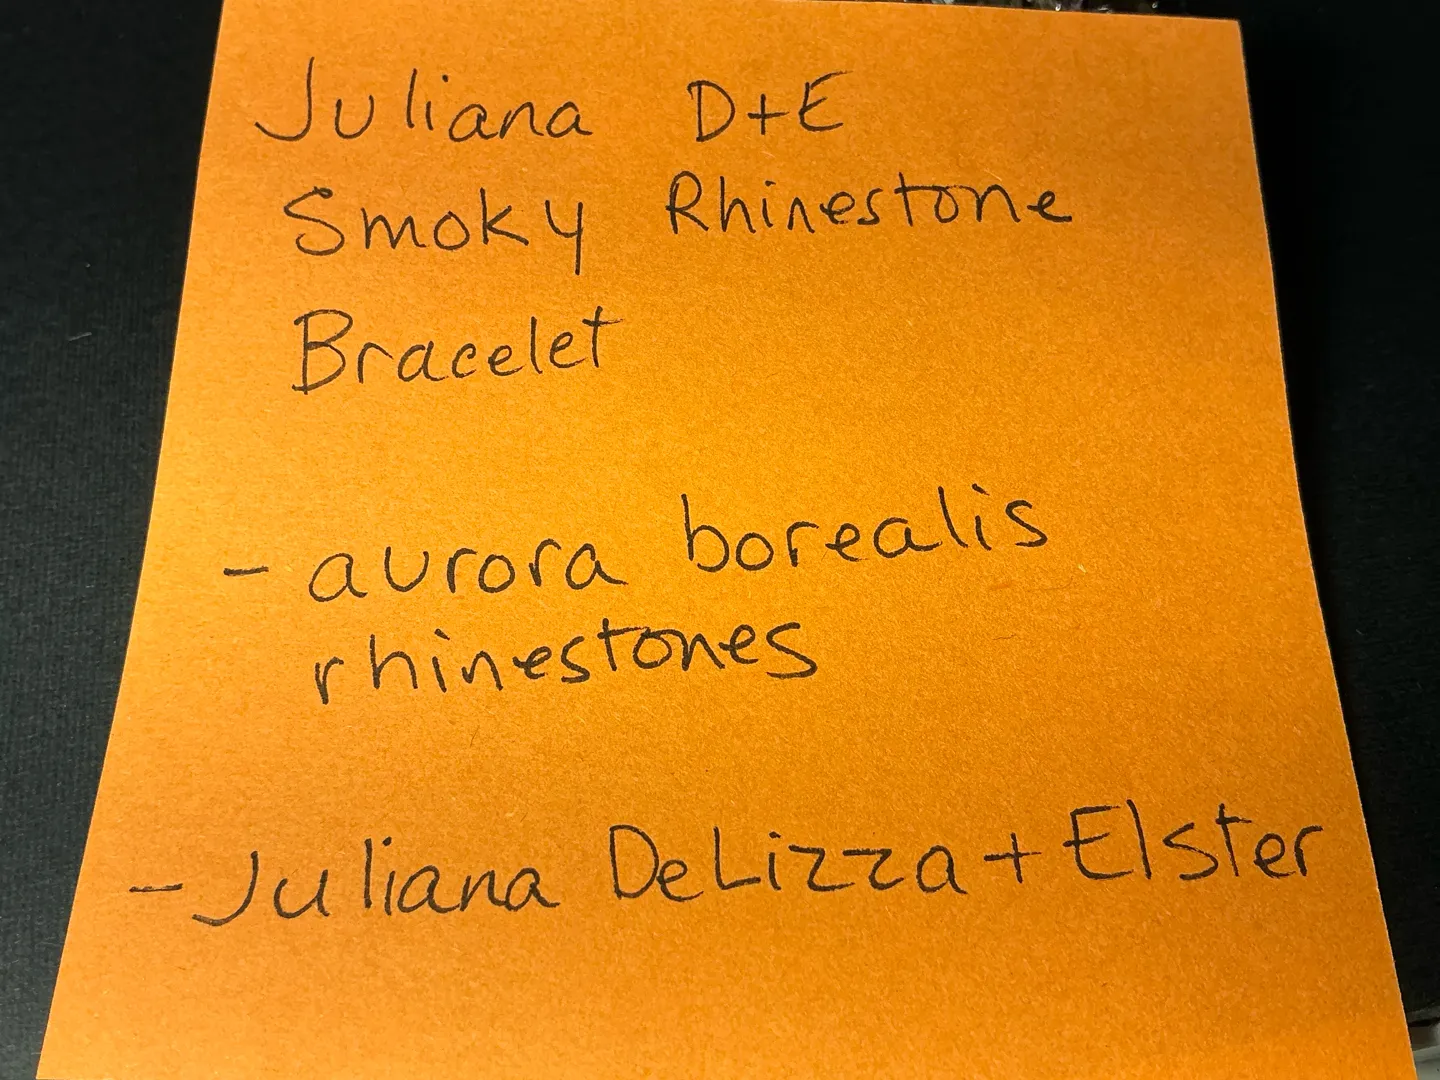 Juliana D+E
Smoky Rhinestone
Bracelet
- aurora borealis
rhinestones
- Juliana DeLizza + Elster